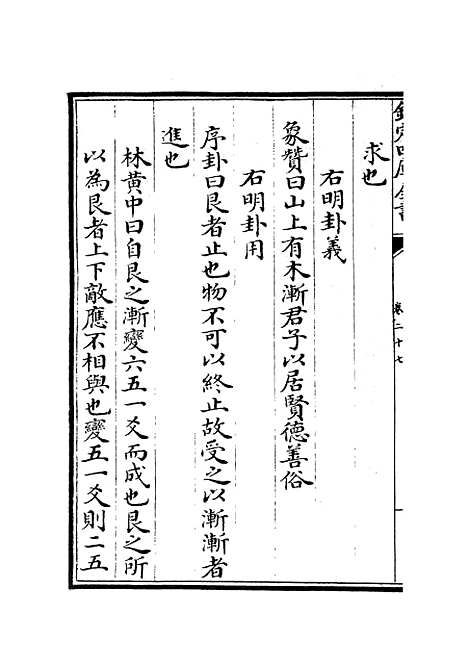 欽定四庫全書
卷二十七
求也
右明卦義
象贊曰山上有木漸君子以居賢德善俗
右明卦用
序卦曰艮者止也物不可以終止故受之以漸漸者
進也
林黄中曰自艮之漸變六五一爻而成也艮之所
以為艮者上下敵應不相與也變五一爻則二五